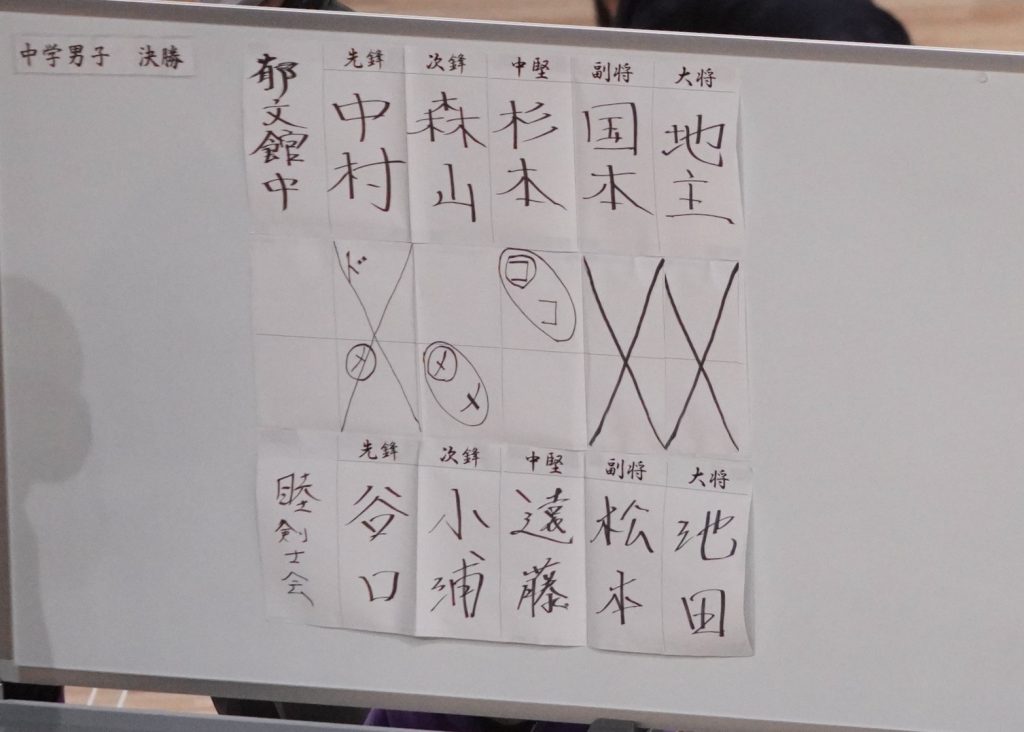 中学男子 決勝
郁文館中
先鋒 次鋒 中堅 副将 大将
中村 森山 杉本 国本 地主
ド コ コ
メ メ メ
睦剣士会
先鋒 次鋒 中堅 副将 大将
谷口 小浦 遠藤 松本 池田